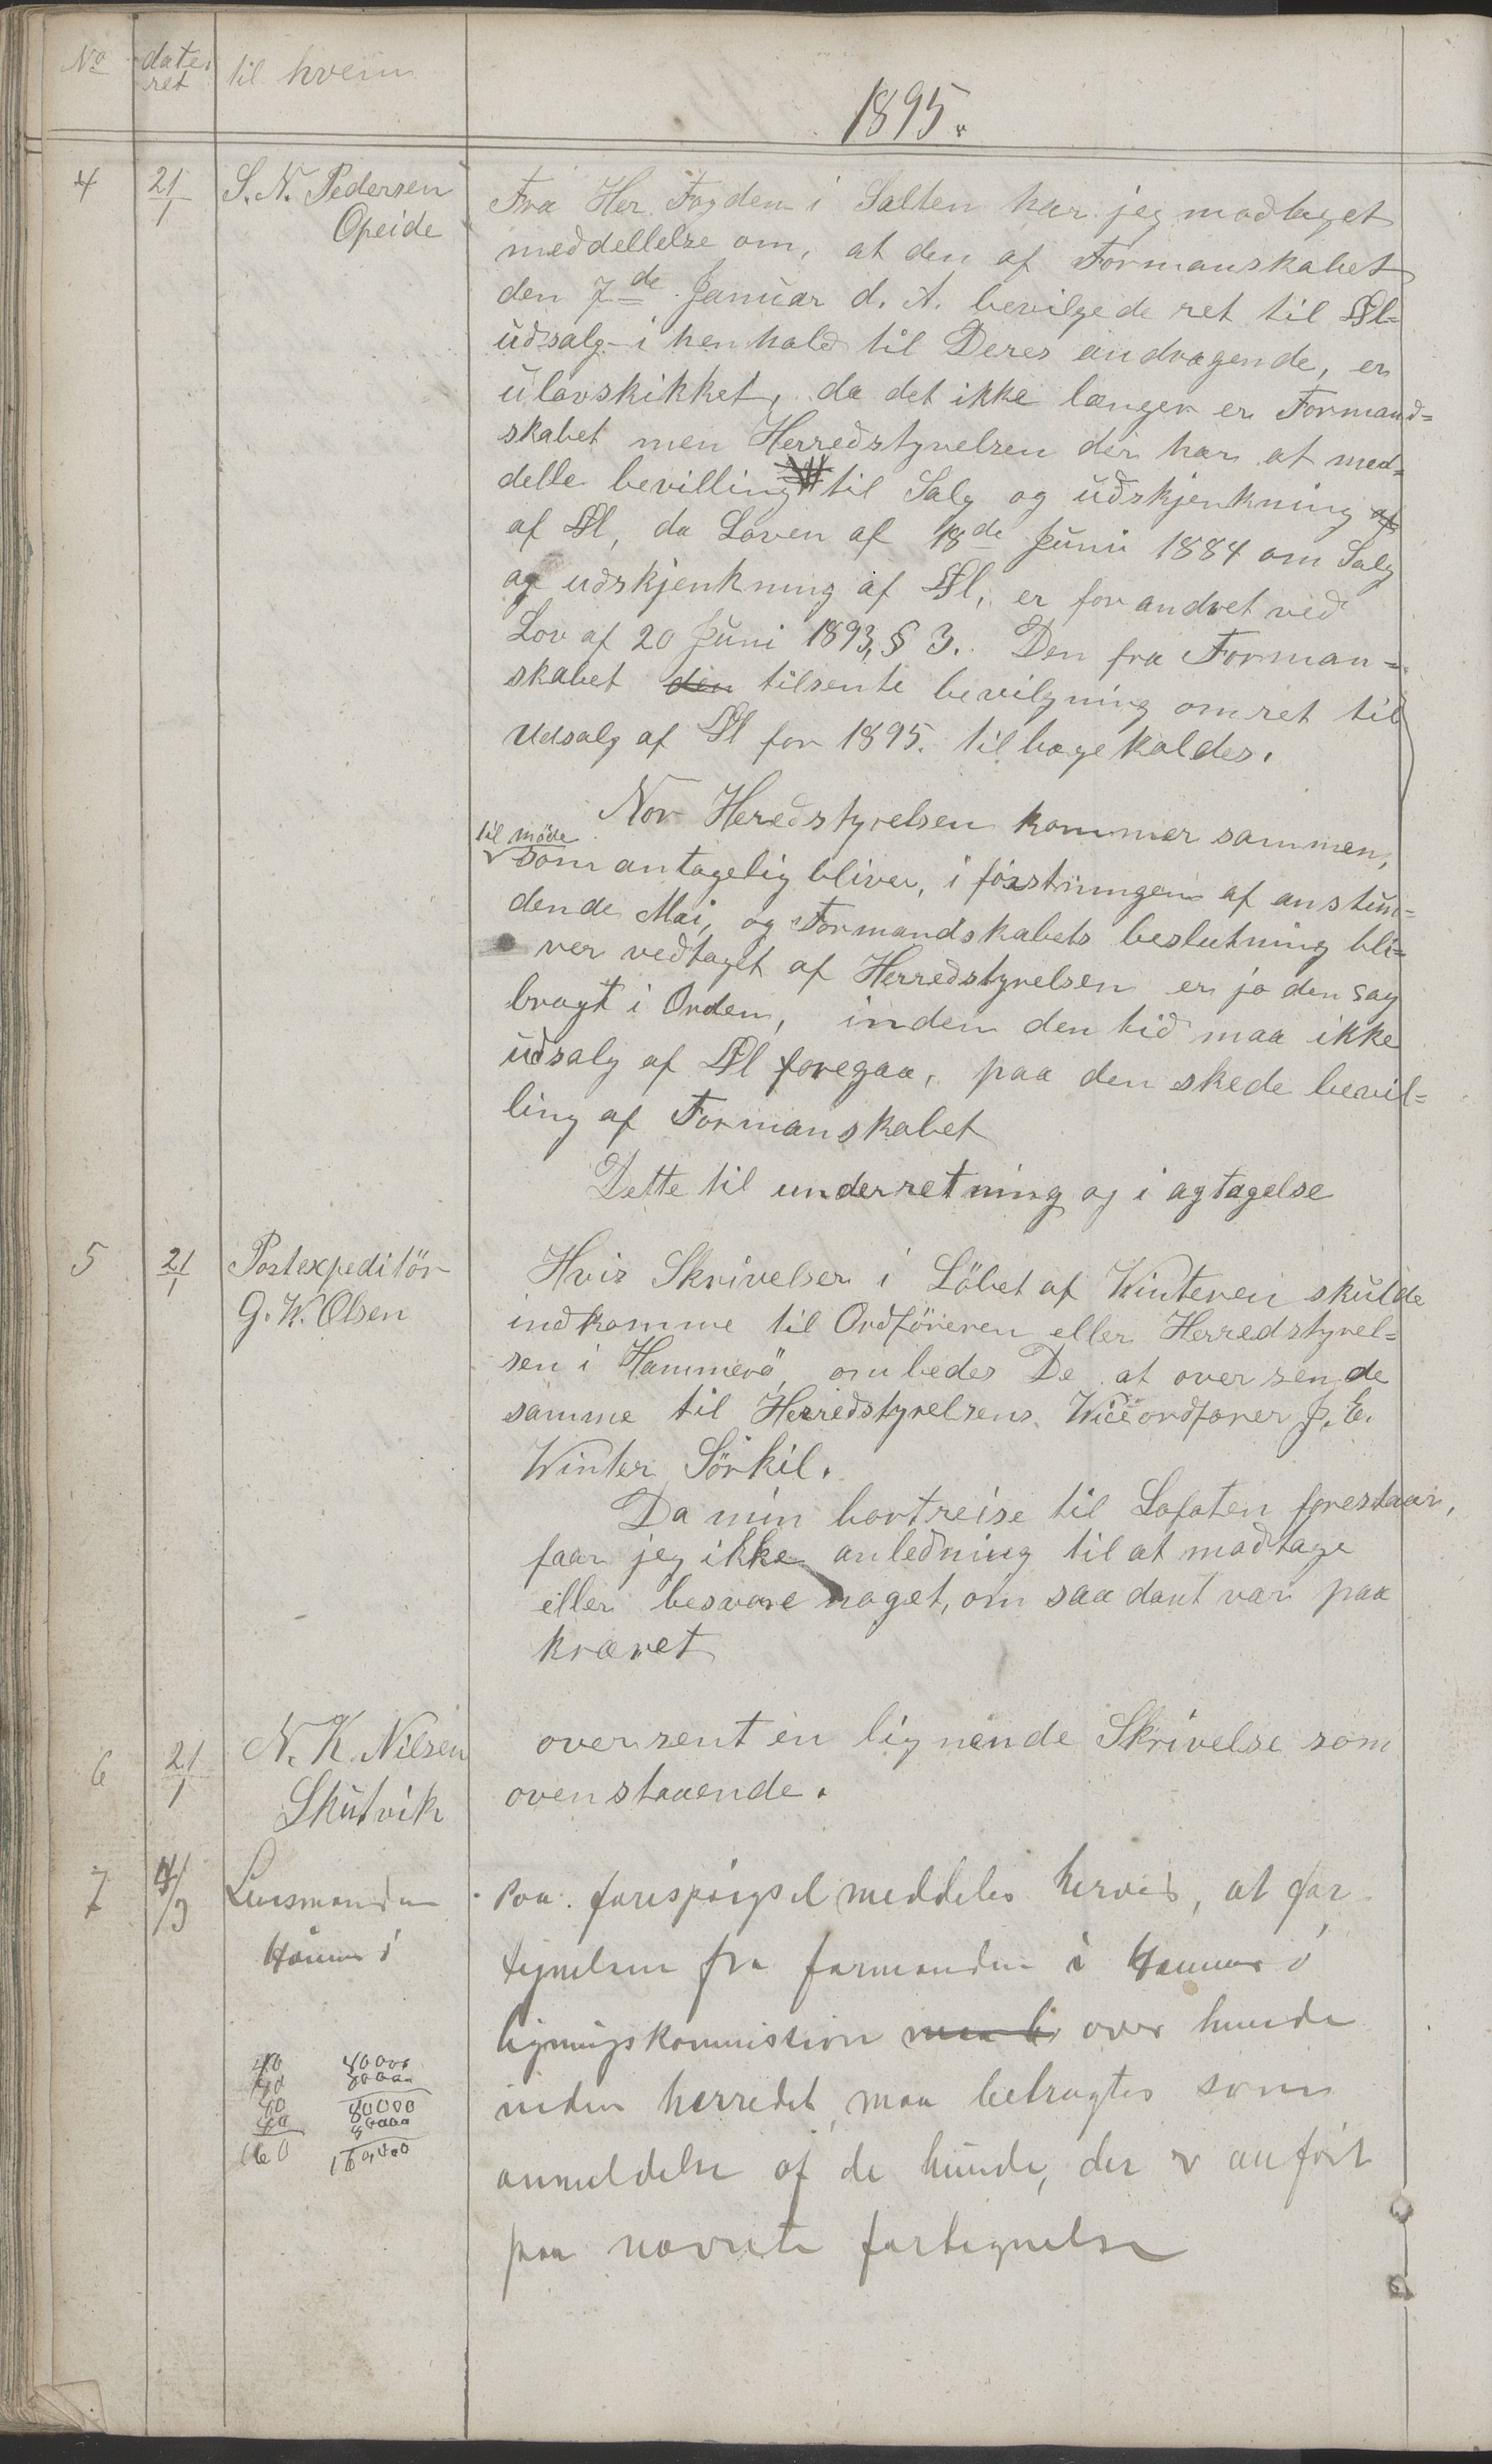 No
date-
ret
til hvem
1895.
4
21/1
S. N. Pedersen
Opeide
Fra Her Fogden i Salten har jeg modtaget
meddellelse om, at den af Formanskabet
den 7de Januar d. A. bevilgede ret til Øl-
udsalg i henhold til Deres andragende, er
ulovskikket, da det ikke længer er Formand-
skabet men Herredstyrelsen der har at med-
delle bevilling til Salg og udskjenkning af
af Øl, da Loven af 18de Juni 1884 om Salg
og udskjenkning af Øl, er forandret ved
Lov af 20 Juni 1893, § 3. Den fra Forman-
skabet den tilsente bevilgning om ret til
Udsalg af Øl for 1895. tilbagekaldes.
Nor Heredstyrelsen kommer sammen,
til møde
som antagelig bliver, i førstningen af anstun-
dende Mai, og Formandskabets beslutning bli-
ver vedtaget af Herredstyrelsen er jo den sag
bragt i Orden, inden den tid maa ikke
udsalg af Øl foregaa, paa den skede bevil-
ling af Formanskabet
Dette til underretning og i agtagelse
5
21/1
Postexpeditör
G. W. Olsen
Hvis Skrivelser i Löbet af Winteren skulde
indkomme til Ordföreren eller Herredstyrel-
sen i Hammerö, ombedes De at oversende
samme til Herredstyrelsens Wiceordfører J. E.
Winter Sörkil.
Da min bortreise til Lofoten forestaar,
faar jeg ikke anledning til at modtage
eller besvare noget, om saadant var paa
krævet
6
21/1
N. K. Nilsen
Skutvik
oversent en lignende Skrivelse som
ovenstaaende.
7
4/3
Lensmanden
Hammerö
Paa forespørgsel meddeles herved, at for
tegnelsen fra formanden i Hammerö
ligningskommission over hunde
inden herredet, maa betragtes som
anmeldelse af de hunde, der er anført
paa nævnte fortegnelse
40 40000
40 40000
80 80000
80 80000
160 160,000